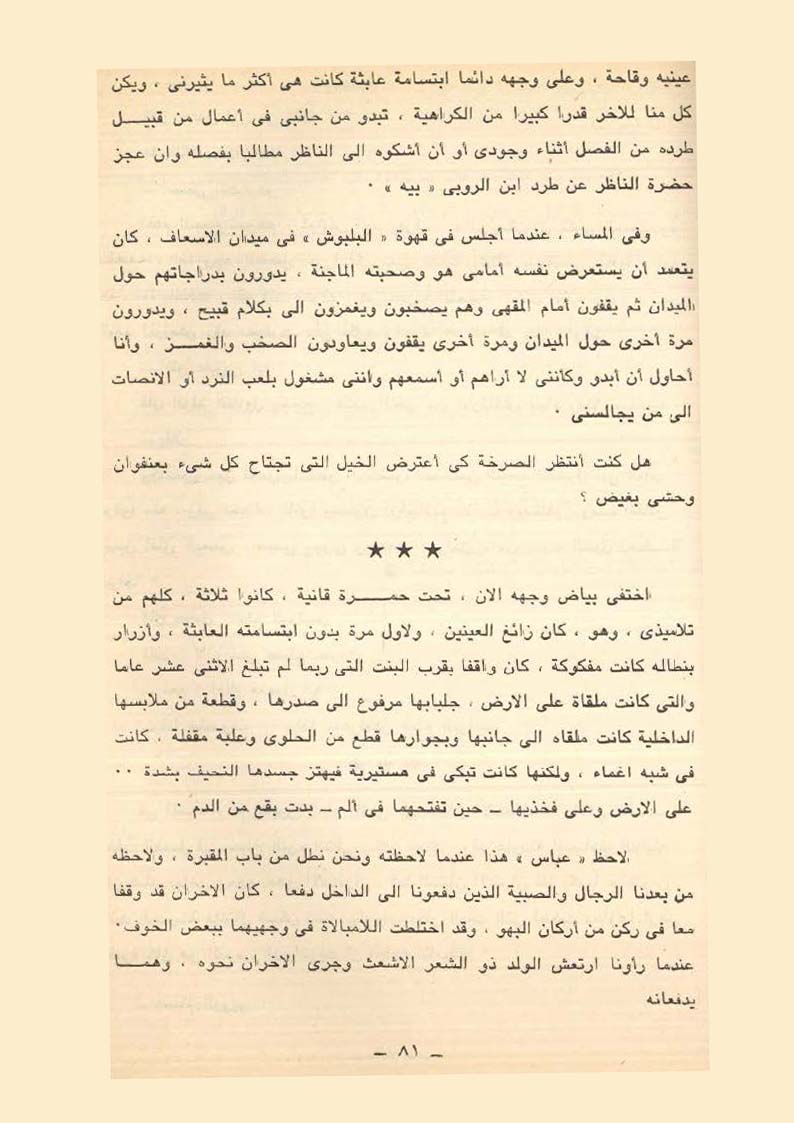 عينيه وقاحة ، وعلى وجهه دائما ابتسامة عابثة كانت هى أكثر ما يثيرنى ، ويكن
كل منا للاخر قدرا كبيرا من الكراهية ، تبدو من جانبى فى أعمال من قبيـــل
طرده من الفصل أثناء وجودى أو أن أشكوه الى الناظر مطالبا بفصله وان عجز
حضرة الناظر عن طرد ابن الروبى « بيه » ٠
وفى المساء ، عندما أجلس فى قهوة « البلبوش » فى ميدان الاسعاف ، كان
يتعمد أن يستعرض نفسه أمامى هو وصحبته الماجنة ، يدورون بدراجاتهم حول
الميدان ثم يقفون أمام المقهى وهم يصخبون ويغمزون الى بكلام قبيح ، ويدورون
مرة أخرى حول الميدان ومرة أخرى يقفون ويعاودون الصخب والغمـــز ، وأنا
أحاول أن أبدو وكأننى لا أراهم أو أسمعهم واننى مشغول بلعب النرد أو الانصات
الى من يجالسنى ٠
هل كنت أنتظر الصرخة كى أعترض الخيل التى تجتاح كل شىء بعنفوان
وحشى بغيض ؟
★ ★ ★
اختفى بياض وجهه الان ، تحت حمـــرة قانية ، كانوا ثلاثة ، كلهم من
تلاميذى ، وهو ، كان زائغ العينين ، ولاول مرة بدون ابتسامته العابثة ، وأزرار
بنطاله كانت مفكوكة ، كان واقفا بقرب البنت التى ربما لم تبلغ الاثنى عشر عاما
والتى كانت ملقاة على الارض ، جلبابها مرفوع الى صدرها ، وقطعة من ملابسها
الداخلية كانت ملقاه الى جانبها وبجوارها قطع من الحلوى وعلبة مقفلة ، كانت
فى شبه اغماء ، ولكنها كانت تبكى فى هستيرية فيهتز جسدها النحيف بشدة ٠٠
على الارض وعلى فخذيها ــ حين تفتحهما فى ألم ــ بدت بقع من الدم ٠
لاحظ « عباس » هذا عندما لاحظته ونحن نطل من باب المقبرة ، ولاحظه
من بعدنا الرجال والصبية الذين دفعونا الى الداخل دفعا ، كان الاخران قد وقفا
معا فى ركن من أركان البهو ، وقد اختلطت اللامبالاة فى وجهيهما ببعض الخوف٠
عندما رأونا ارتعش الولد ذو الشعر الاشعث وجرى الاخران نحوه ، وهمـــا
يدفعانه
ــ ٨١ ــ